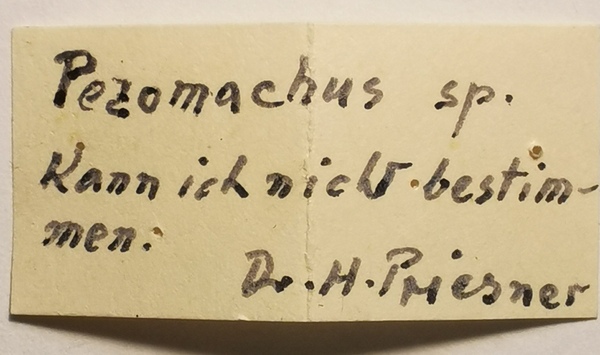 Pezomachus sp.
Kann ich nicht bestim-
men.
Dr. H. Priesner